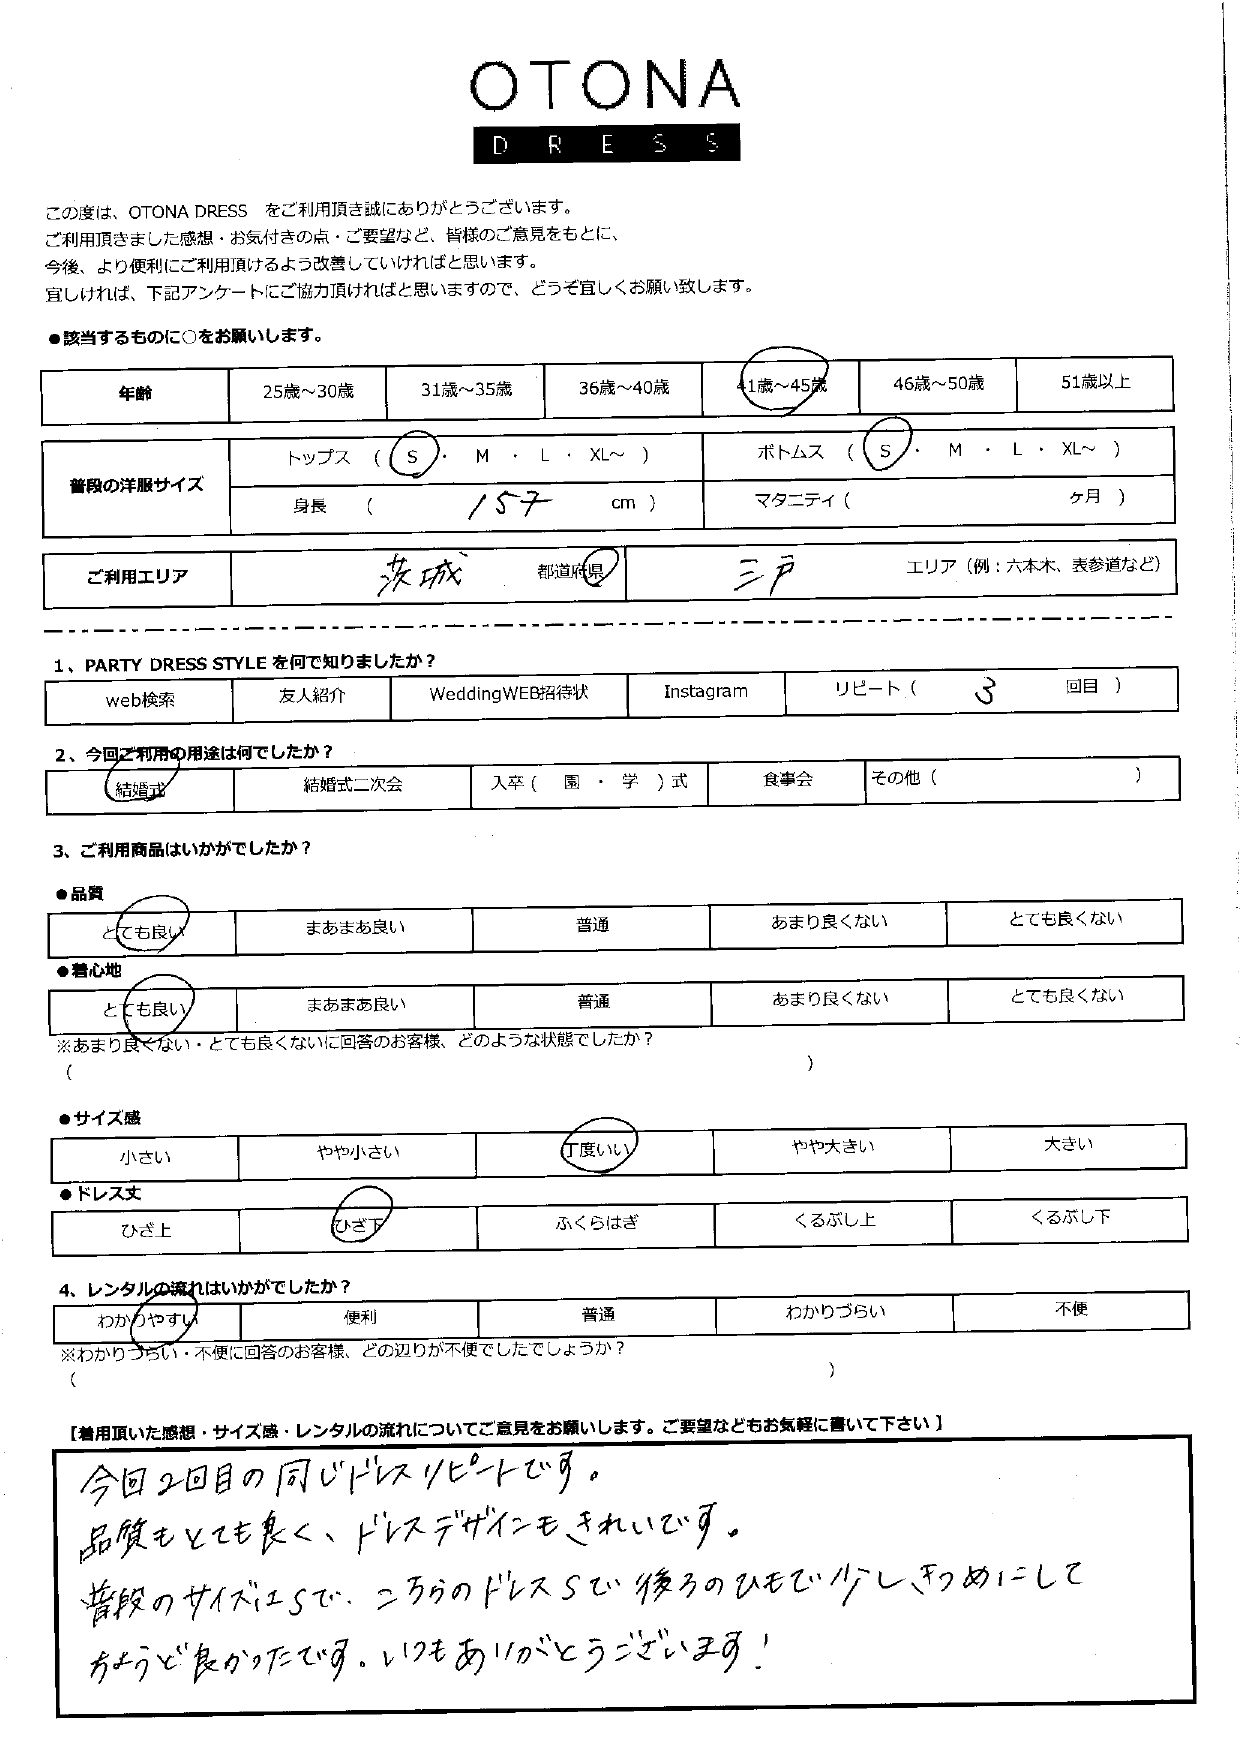 OTONA
DRESS
この度は、OTONA DRESS をご利用頂き誠にありがとうございます。
ご利用頂きました感想・お気付きの点・ご要望など、皆様のご意見をもとに、
今後、より便利にご利用頂けるよう改善していければと思います。
宜しければ、下記アンケートにご協力頂ければと思いますので、どうぞ宜しくお願い致します。
●該当するものに○をお願いします。
年齢 25歳～30歳 31歳～35歳 36歳～40歳 41歳～45歳 46歳～50歳 51歳以上
普段の洋服サイズ トップス ( S ・ M ・ L ・ XL～ ) ボトムス ( S ・ M ・ L ・ XL～ )
身長 ( 157 cm ) マタニティ ( ヶ月 )
ご利用エリア 茨城 都道府県 三戸 エリア（例：六本木、表参道など）
1、PARTY DRESS STYLE を何で知りましたか？
web検索 友人紹介 WeddingWEB招待状 Instagram リピート ( 3 回目 )
2、今回ご利用の用途は何でしたか？
結婚式 結婚式二次会 入卒 ( 園 ・ 学 ) 式 食事会 その他 ( )
3、ご利用商品はいかがでしたか？
●品質
とても良い まあまあ良い 普通 あまり良くない とても良くない
●着心地
とても良い まあまあ良い 普通 あまり良くない とても良くない
※あまり良くない・とても良くないに回答のお客様、どのような状態でしたか？
( )
●サイズ感
小さい やや小さい 丁度いい やや大きい 大きい
●ドレス丈
ひざ上 ひざ下 ふくらはぎ くるぶし上 くるぶし下
4、レンタルの流れはいかがでしたか？
わかりやすい 便利 普通 わかりづらい 不便
※わかりづらい・不便に回答のお客様、どの辺りが不便でしたでしょうか？
( )
【着用頂いた感想・サイズ感・レンタルの流れについてご意見をお願いします。ご要望などもお気軽に書いて下さい】
今回2回目の同じドレスリピートです。
品質もとても良く、ドレスデザインもきれいです。
普段のサイズはSで、こちらのドレスSで後ろのひもで少しきつめにして
ちょうど良かったです。いつもありがとうございます！